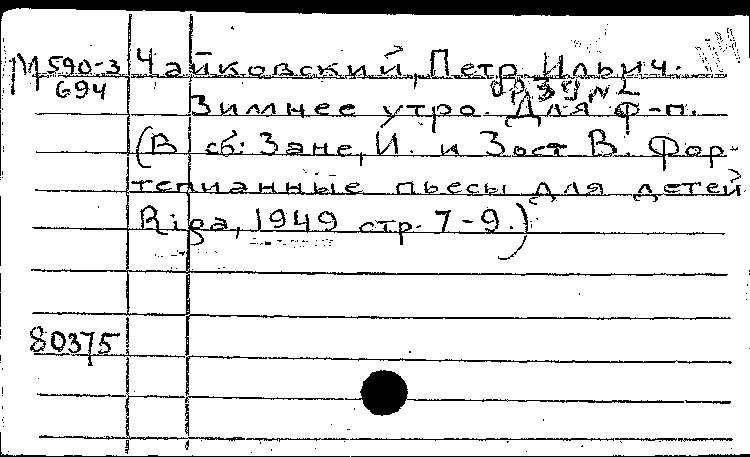 М 590-3
694
Чайковский, Петр Ильич.
ор 39 N2
Зимнее утро. Для ф-п.
(В сб: Зане, И. и Зост В. Фор-
тепианные пьесы для детей
Riga, 1949 стр. 7-9.)
80375